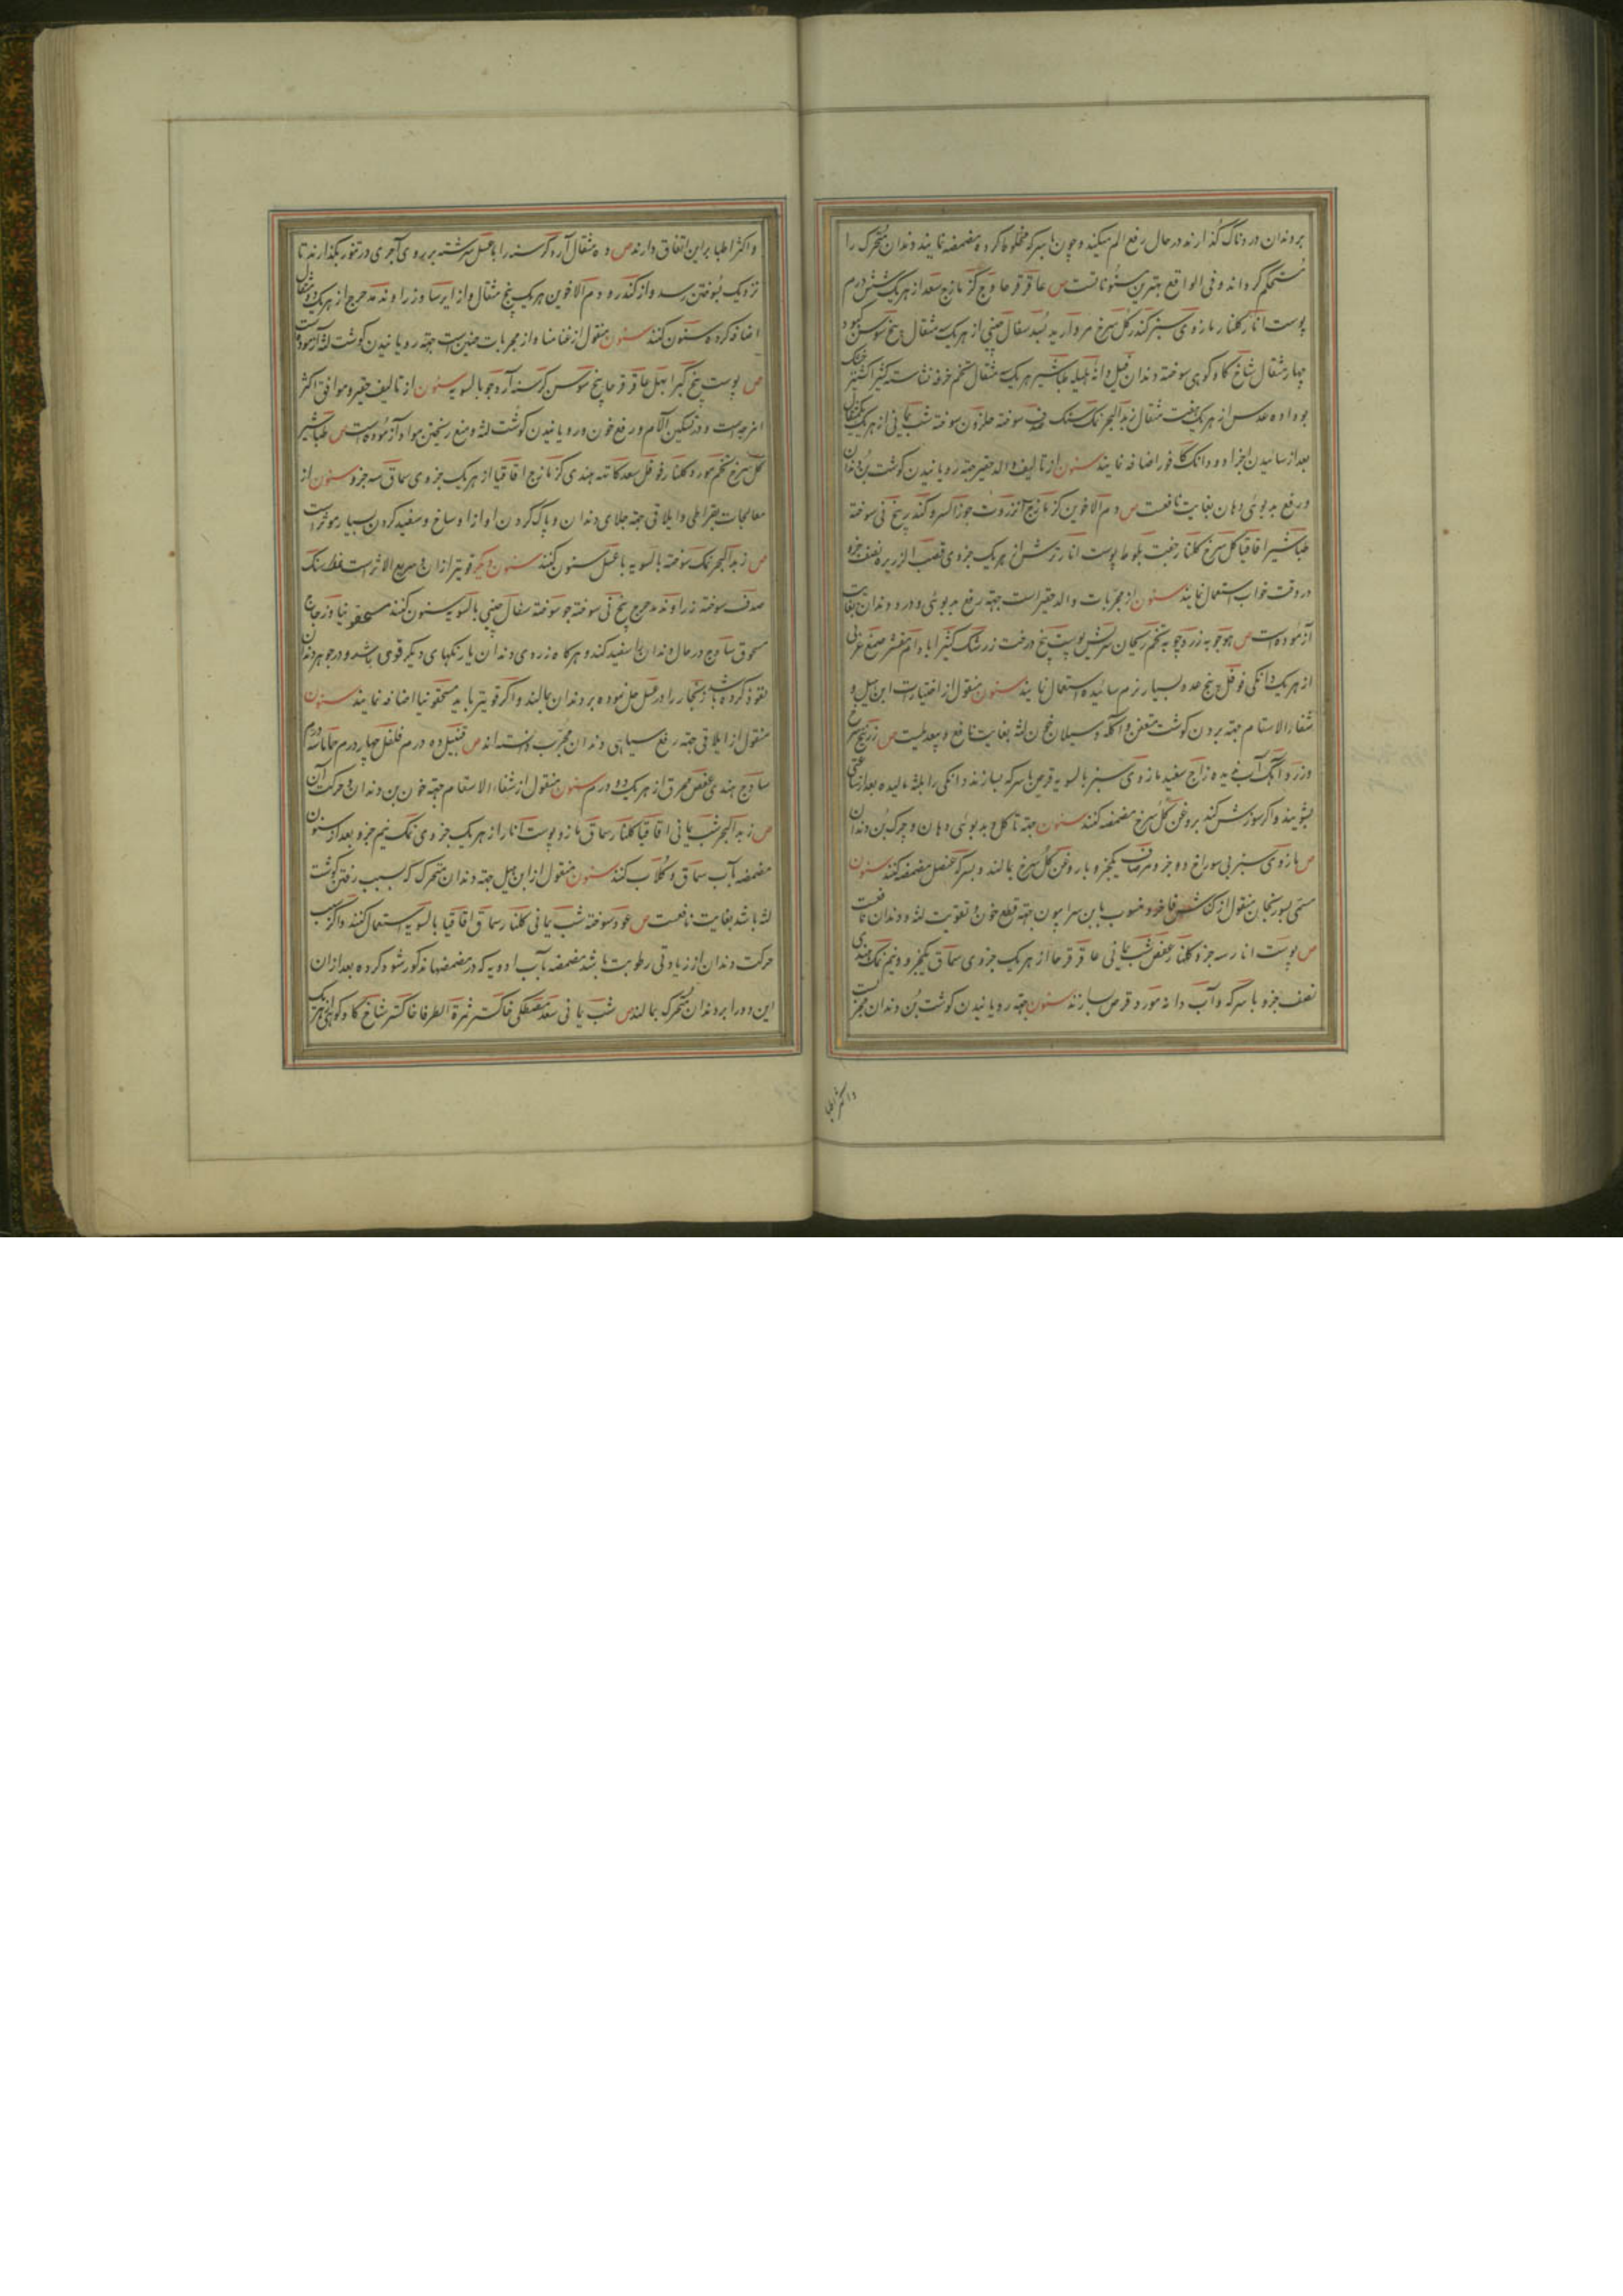 بر دندان دردناک گذارند در حال رفع الم میکند و چون با سرکه مخلوط کرده مضمضه نمایند دندان متحرک را
مستحکم گرداند و فی الواقع بهترین سنونات است ص عاقرقرحا وج کزمازج سعد از هر یک شش درم
پوست انار کلنار مازوی سبز کندر کل سرخ مروارید بسد سفال چینی از هر یک سه مثقال و بیخ سوسن کبود
چهار مثقال شاخ کاو کوهی سوخته دندان فیل دانه هلیله طباشیر هر یک مثقال تخم خرفه نشاسته کثیرا کشنیز خشک
بو داده عدس از هر یک هفت مثقال زبد البحر نمک سنک صدف سوخته حلزون سوخته شب یمانی از هر یک یکمثقال
بعد از سائیدن اجزا دو دانک کافور اضافه نمایند سنون از تالیف والد حقیر جهة رویانیدن کوشت بن دندان
و رفع بدبوئی دهان بغایت نافعست ص دم الاخوین کزمازج انزروت جوز السرو کندر بیخ نی سوخته
طباشیر اقاقیا کل سرخ کلنار جفت بلوط پوست انار ترش از هر یک جزوی قصب الزریره نصف جزو
در وقت خواب استعمال نمایند سنون از مجربات والد حقیر است جهة رفع بدبوئی و درد دندان بغایت
آزموده است ص هوجوبه زردچوبه تخم ریحان سریش پوست بیخ درخت زرشک کثیرا بادام مقشر صمغ عربی
از هر یک دانکی فوفل پنج عدد بسیار نرم سائیده استعمال نمایند سنون منقول از اختیارات ابن هبل و
شفاء الاسقام جهة بردن کوشت متعفن و آکله و سیلان خون لثه بغایت نافع و بیعدیلست ص زرنیخ سرخ
و زرد آهک آب ندیده زاج سفید مازوی سبز بالسویه قرص با سرکه بسازند و دانکی را بلثه مالیده بعد از ساعتی
بشویند و اکر سوزش کند بروغن کل سرخ مضمضه کنند سنون جهة تاکل و بدبوئی دهان و چرک بن دندان
ص مازوی سبز بی سوراخ دو جزو مرصاف یکجزو با روغن کل سرخ بمالند و بسرکه عنصل مضمضه کنند سنون
مسمی بسورنجان منقول از کناش فاخر و منسوب بابن سرابیون جهة قطع خون و تقویت لثه و دندان نافعست
ص پوست انار سه جزو کلنار عفص شب یمانی عاقرقرحا از هر یک جزوی سماق یکجزو و نیم نمک هندی
نصف جزو با سرکه و آب دانه مورد قرص سازند سنون جهة رویانیدن کوشت بن دندان مجربست
واکثر اطبا
و اکثر اطبا بر این اتفاق دارند ص ده مثقال آرد کرسنه را با عسل سرشته بر روی آجری در تنور بکذارند تا
نزدیک بسوختن رسد و از کندر و دم الاخوین هر یک پنج مثقال و از ایرسا و زراوند مدحرج از هر یک دو مثقال
اضافه کرده سنون کنند سنون منقول از غنا منا و از مجربات چنین است جهة رویانیدن کوشت لثه آزموده است
ص پوست بیخ کبر ابهل عاقرقرحا بیخ سوسن کرسنه آرد جو بالسویه سنون از تالیف حقیر و موافق اکثر
امزجه است و در تسکین آلام و رفع خون و رویانیدن کوشت لثه و منع ریختن مواد آزموده است ص طباشیر
کل سرخ تخم مورد کلنار فوفل سعد کات هندی کزمازج اقاقیا از هر یک جزوی سماق سه جزو سنون از
معالجات بقراطی و ایلاقی جهة جلای دندان و پاک کردن او از اوساخ و سفید کردن بسیار موثر است
ص زبد البحر نمک سوخته بالسویه با عسل سنون کنند سنون دیکر قویتر از آن و سریع الاثر است
صدف سوخته زراوند مدحرج بیخ نی سوخته جو سوخته سفال چینی بالسویه سنون کنند مسحقونیا و زجاج
مسحوق ساذج در حال دندان را سفید کند و هرکاه زردی دندان یا رنکهای دیکر قوی باشد و در جوهر دندان
نفوذ کرده باشد زنجار را در عسل حل نموده بر دندان بمالند و اکر قویتر باید مسحقونیا اضافه نمایند سنون
منقول از ایلاقی جهة رفع سیاهی دندان مجرب دانسته اند ص قنبیل ده درم فلفل چهار درم حماما سه درم
ساذج هندی عفص محرق از هر یک دو درم سنون منقول از شفاء الاسقام جهة خون بن دندان و حرکت آن
ص زبد البحر شب یمانی اقاقیا کلنار سماق مازو پوست انار از هر یک جزوی نمک نیم جزو بعد از سنون
مضمضه بآب سماق و کلاب کنند سنون منقول از ابن هبل جهة دندان متحرک که بسبب رفتن کوشت
لثه باشد بغایت نافعست ص عود سوخته شب یمانی کلنار سماق اقاقیا بالسویه استعمال کنند و اکر سبب
حرکت دندان از زیادتی رطوبت باشد مضمضه بآب ادویه که در مضمضها مذکور شود کرده بعد از آن
این دوا را بر دندان متحرک بمالند ص شب یمانی سعد مصطکی خاکستر ثمرة الطرفا خاکستر شاخ کاو کوهی هر یک